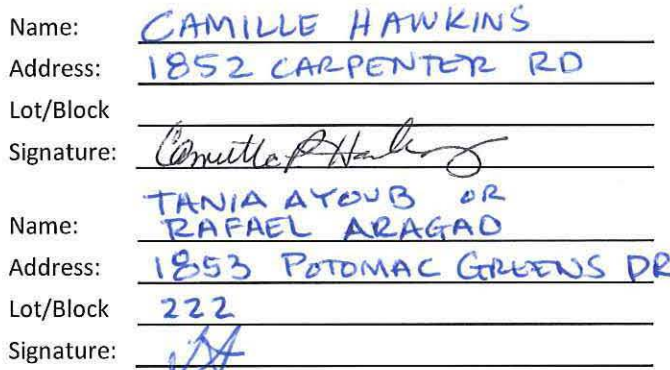 Name: CAMILLE HAWKINS
Address: 1852 CARPENTER RD
Lot/Block
Signature:
TANIA AYOUB OR
Name: RAFAEL ARAGAD
Address: 1853 POTOMAC GREENS DR
Lot/Block 222
Signature: